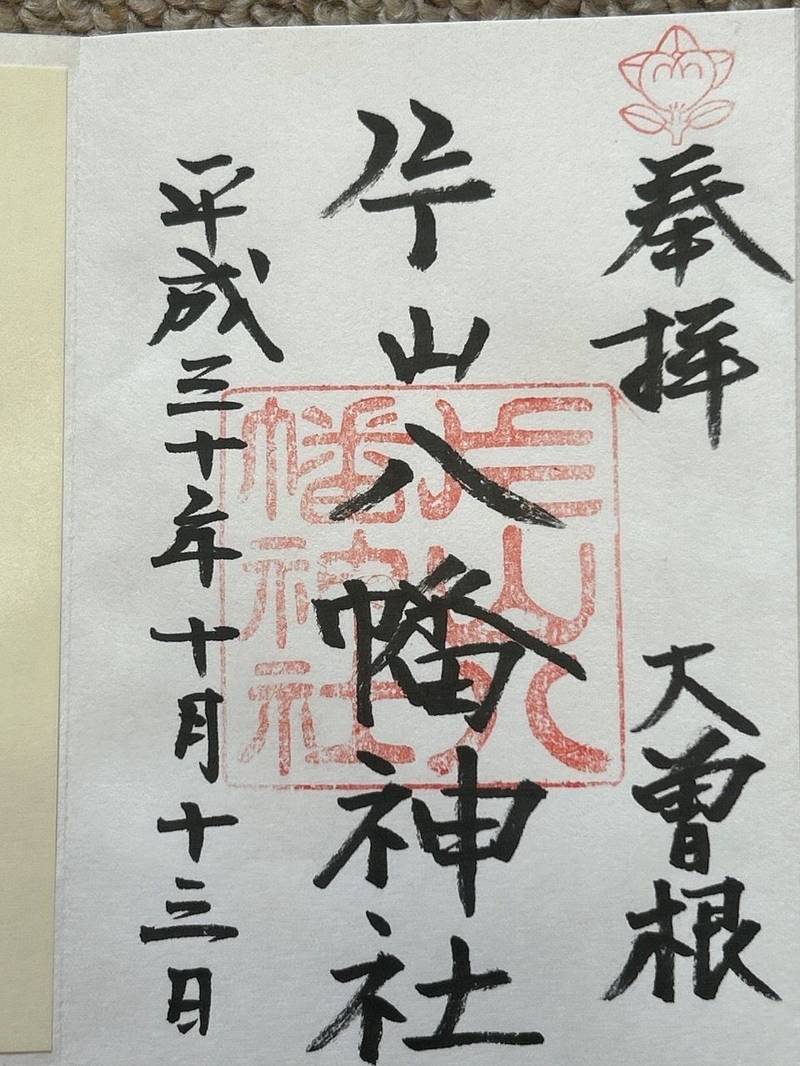 奉拝
大曽根
片山八幡神社
平成三十年十月十三日
片山八
幡神社